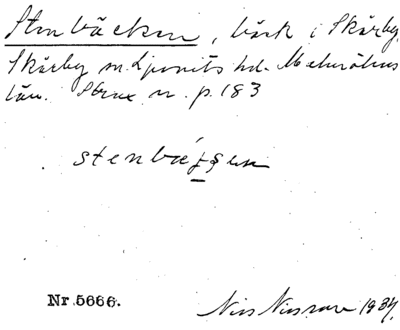 Stenbäcken, bäck i Skårby,
Skårby sn. Ljunits hd. Malmöhus
län. Strax n. p. 183
stenbæ
Nr 5666.
Nils Nilsson 1934.